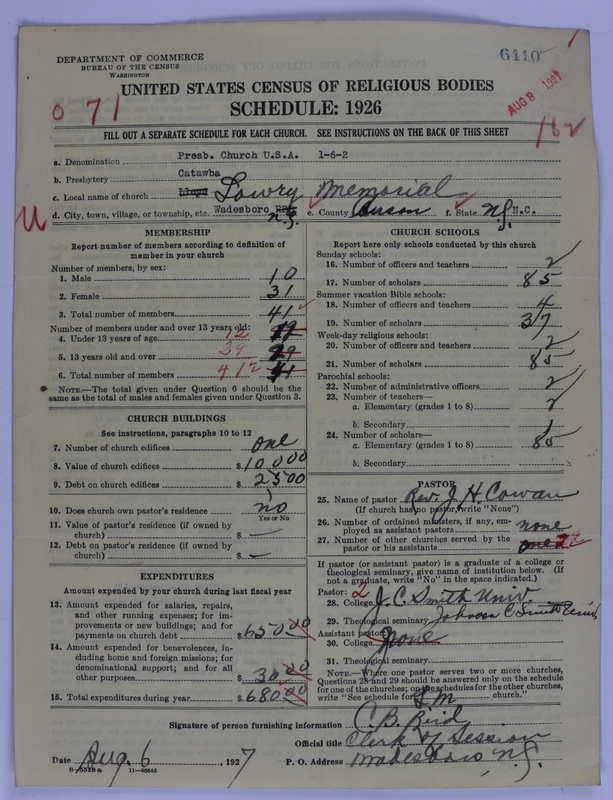 6410
DEPARTMENT OF COMMERCE
BUREAU OF THE CENSUS
WASHINGTON
UNITED STATES CENSUS OF RELIGIOUS BODIES
SCHEDULE: 1926
AUG 8 1927
071
162
FILL OUT A SEPARATE SCHEDULE FOR EACH CHURCH. SEE INSTRUCTIONS ON THE BACK OF THIS SHEET
a. Denomination Presb. Church U.S.A. 1-6-2
b. Presbytery Catawba
c. Local name of church Lloyd Lowry Memorial
d. City, town, village, or township, etc. Wadesboro e. County Anson f. State N.C.
MEMBERSHIP
Report number of members according to definition of
member in your church
Number of members, by sex:
1. Male 10
2. Female 31
3. Total number of members 41
Number of members under and over 13 years old:
4. Under 13 years of age 12
5. 13 years old and over 29 29
6. Total number of members 41 41
NOTE.—The total given under Question 6 should be
same as the total of males and females given under Question 3.
CHURCH BUILDINGS
See instructions, paragraphs 10 to 12
7. Number of church edifices one
8. Value of church edifices $10,000
9. Debt on church edifices $2500
10. Does church own pastor's residence? no
Yes or No
11. Value of pastor's residence (if owned by
church) $ —
12. Debt on pastor's residence (if owned by
church) $ —
EXPENDITURES
Amount expended by your church during last fiscal year
13. Amount expended for salaries, repairs,
and other running expenses; for im-
provements or new buildings; and for
payments on church debt $650.00
14. Amount expended for benevolences, in-
cluding home and foreign missions; for
denominational support; and for all
other purposes 30.00
15. Total expenditures during year $680.00
CHURCH SCHOOLS
Report here only schools conducted by this church
Sunday schools:
16. Number of officers and teachers 2
17. Number of scholars 85
Summer vacation Bible schools:
18. Number of officers and teachers 4
19. Number of scholars 37
Week-day religious schools:
20. Number of officers and teachers 2
21. Number of scholars 85
Parochial schools:
22. Number of administrative officers 2
23. Number of teachers—
a. Elementary (grades 1 to 8) 2
b. Secondary 1
24. Number of scholars—
a. Elementary (grades 1 to 8) 85
b. Secondary
PASTOR
25. Name of pastor Rev. J. H. Cowan
(If church has no pastor, write "None")
26. Number of ordained ministers, if any, em-
ployed as assistant pastors none
27. Number of other churches served by the
pastor or his assistants one
If pastor (or assistant pastor) is a graduate of a college or
theological seminary, give name of institution below. (If
not a graduate, write "No" in the space indicated.)
Pastor: 2
28. College J. C. Smith Univ.
29. Theological seminary Johnson C Smith
Assistant pastor:
30. College None
31. Theological seminary
NOTE.—Where one pastor serves two or more churches,
Questions 28 and 29 should be answered only on the schedule
for one of the churches; on the schedules for the other churches,
write "See schedule for church."
Signature of person furnishing information
Official title Clerk of Session
Date Aug. 6, 1927 P. O. Address Wadesboro, N.C.